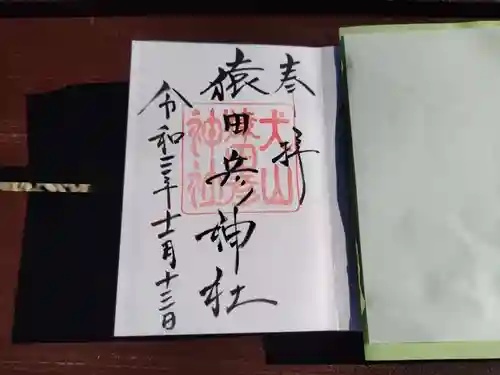 奉拝
猿田彦神社
令和三年十二月十三日
犬山
猿田彦
神社